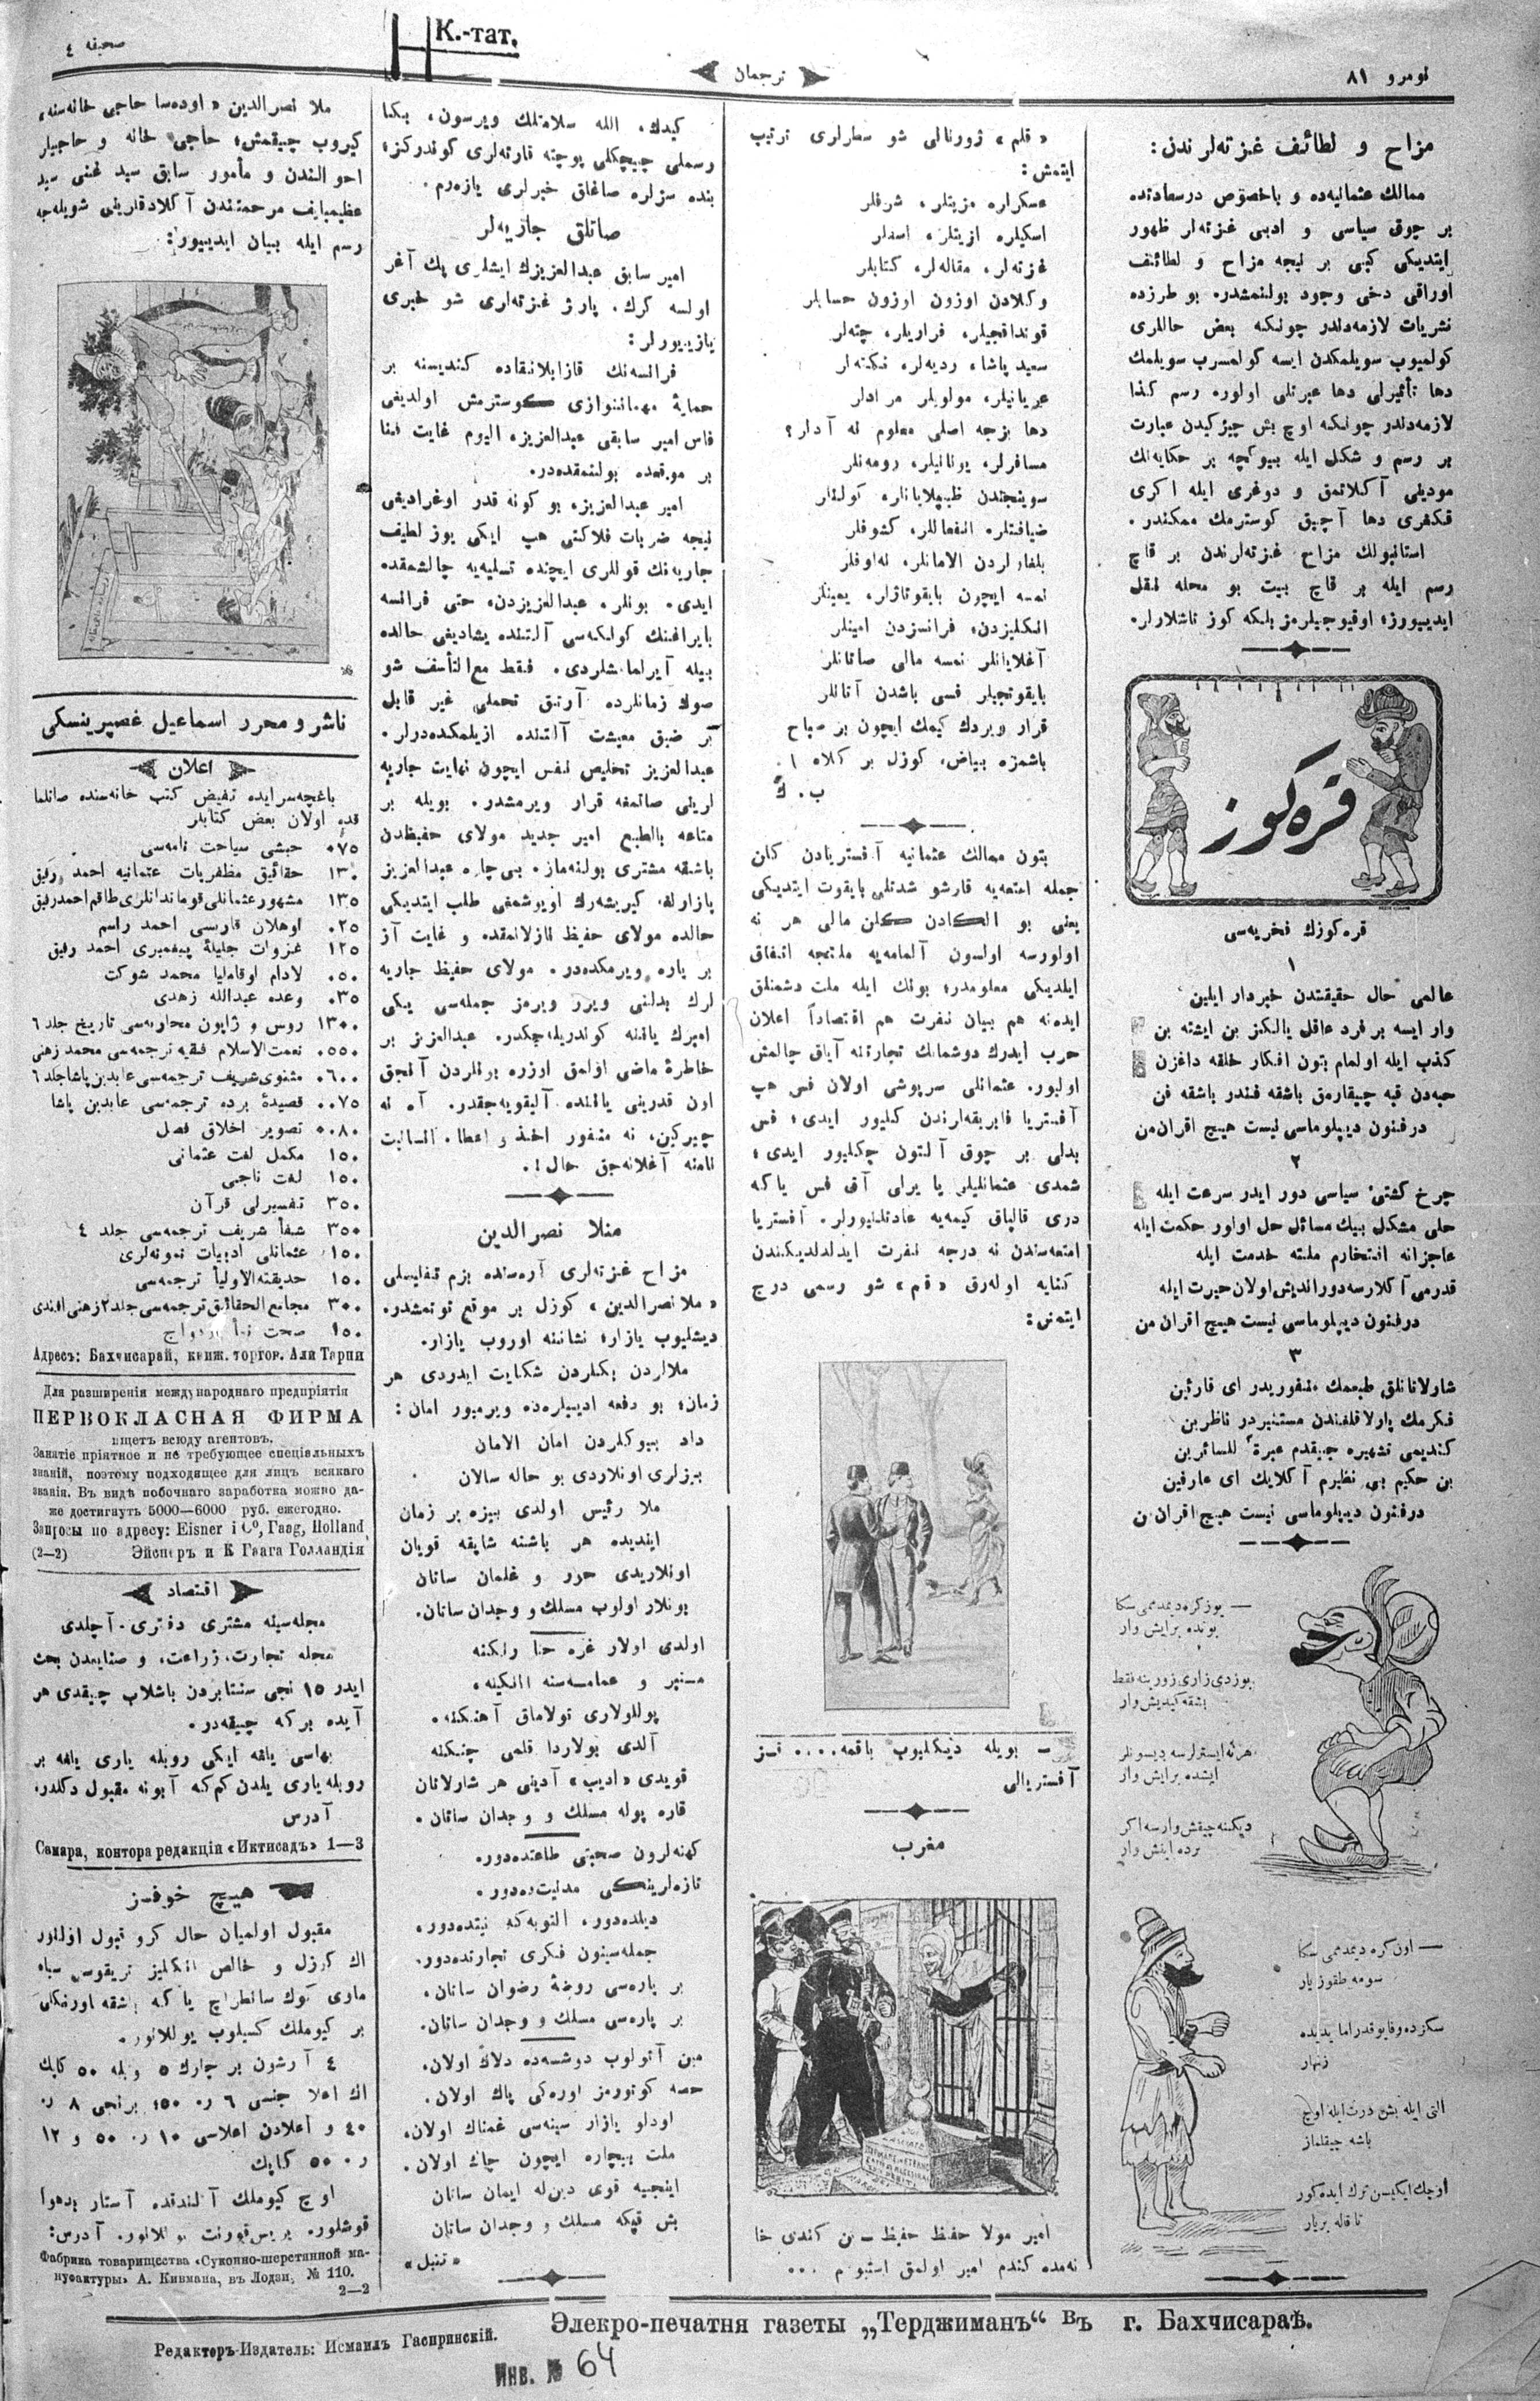 نومرو ٨١
ترجمان
صحيفه ٤
К.-тат.
مزاح و لطائف غزته‌لرندن:
ممالك عثمانيه‌ده و باخصوص درسعادتده
بر چوق سياسى و ادبى غزته‌لر ظهور
ايتديكى كبى بر نيجه مزاح و لطائف
اوراقى دخى وجود بولنمشدر. بو طرزده
نشريات لازمه‌دلدر چونكه بعض حاللرى
كولميوب سويلمكدن ايسه كولمسرب سويلمك
دها تأثيرلى دها عبرتلى اولور. رسم كذا
لازمه‌دلدر چونكه اوچ بش چيزكيدن عبارت
بر رسم و شكل ايله بيوكچه بر حكايه‌نك
موديلى آكلاتمق و دوغرى ايله اكرى
فكرى دها آچيق كوسترمك ممكندر.
استانبولك مزاح غزته‌لرندن بر قاچ
رسم ايله بر قاچ بيت بو محله نقل
ايدييورز؛ اوقيوجيلرمز بلكه كوز تاشلارلر.
قره كوز
قره‌كوزك فخريه‌سى
١
عالمى حال حقيقتدن خبردار ايلين
وار ايسه بر فرد عاقل يالكز بن ايشته بن
كذب ايله اولمام بتون افكار خلقه داغزن
حبه‌دن قبه چيقارمق باشقه فندر باشقه فن
درفنون ديپلوماسى نيست هيچ اقران من
٢
چرخ كشتئ سياسى دور ايدر سرعت ايله
حلى مشكل بيك مسائل حل اولور حكمت ايله
عاجزانه افتخارم ملته خدمت ايله
قدرمى آكلارسه دورانديش اولان حيرت ايله
درفنون ديپلوماسى نيست هيچ اقران من
٣
شارلاتانلق طبعمك منفوريدر اى قارئين
فكرمك پارلاقلغندن مستنيردر ناظرين
كنديمى تشهيره چيقدم عبرة للسائرين
بن حكيم بى نظيرم آكلايك اى عارفين
درفنون ديپلوماسى نيست هيچ اقران من
— يوز كره ديمدمى سكا
بونده بر ايش وار
يوزدى زارى زورينه فقط
بشقه كيديش وار
هر نه ايسترلرسه ديسونلر
ايشده بر ايش وار
ديكنه چيقش وارسه اكر
برده اينش وار
— اون كره ديمدمى سكا
سومه طقوز يار
سكزده وفا يوقدر اما يديده
زنهار
التى ايله بش درت ايله اوچ
باشه چيقلماز
اوچك ايكيسن ترك ايده كور
تا قاله بر يار
« قلم » ژورنالى شو سطرلرى ترتيب
ايتمش:
عسكرلره مزيتلر، شرفلر
اسكيلره ازيتلر، اسفلر
غزته‌لر، مقاله‌لر، كتابلر
وكلادن اوزون اوزون حسابلر
قونداقجيلر، فراريلر، چته‌لر
سعيد پاشا، رديه‌لر، نكته‌لر
عريانيلر، مولويلر مرادلر
دها بزجه اصلى معلوم نه آدلر؟
مسافرلر، يونانيلر، رومه‌نلر
ضيافتلر، انفعاللر، كشوفلر
بلغارلردن الامانلر، نه‌اوفلر
نمسه ايچون بايقوتاژلر، يمينلر
انكليزدن، فرانسزدن امينلر
آغلايانلر نمسه مالى صاتانلر
بايقوتجيلر فسى باشدن آتانلر
قرار ويردك كيمك ايچون بر صباح
باشمزه بياض، كوزل بر كلاه !.
ب. ك
بتون ممالك عثمانيه آفستريادن كلن
جمله امتعه‌يه قارشو شدتلى بايقوت ايتديكى
يعنى بو الكادن كلن مالى هر نه
اولورسه اولسون آلمامه‌يه ملتجه اتفاق
ايلديكى معلومدر؛ بونك ايله ملت دشمنلق
ايدنه هم بيان نفرت هم اقتصاداً اعلان
حرب ايدرك دوشمانك تجارتنه آياق چالمش
اوليور. عثمانلى سرپوشى اولان فس هپ
آفستريا فابريقه‌لرندن كليور ايدى؛ فس
بدلى بر چوق آلتون چكليور ايدى؛
شمدى عثمانليلر يا يرلى آق فس ياكه
درى قالپاق كيمه‌يه عادتلنيورلر. آفستريا
امتعه‌سندن نه درجه نفرت ايدلديكندن
كنايه اوله‌رق « قلم » شو رسمى درج
ايتمش:
— بويله ديكليوب باقمه.... فسز
آفستريالى
مغرب
امير مولا حفيظ حفيظ ـ بن كندى خا
نه‌مده كندم امير اولمق استيوم ...
كيدك، الله سلامتلك ويرسون، يكنا
رسملى چيچكلى پوچته قارته‌لرى كوندركز؛
بنده سزلره صاغاق خبرلرى يازه‌رم.
صاتلق جاريه‌لر
امير سابق عبدالعزيزك ايشلرى پك آغر
اولسه كرك. پارز غزته‌لرى شو خبرى
يازييورلر:
فرانسه‌نك قازابلانقاده كنديسنه بر
حماية مهماننوازى كوسترمش اولديغى
فاس امير سابقى عبدالعزيز، اليوم غايت فنا
بر موقعده بولنمقده‌در.
امير عبدالعزيز، بو كونه قدر اوغراديغى
نيجه ضربات فلاكتى هپ ايكى يوز لطيف
جاريه‌نك قوللرى ايچنده تسليه‌يه چالشمقده
ايدى. بونلر، عبدالعزيزدن، حتى فرانسه
بايراغنك كولكه‌سى آلتنده يشاديغى حالده
بيله آيرلمامشلردى. فقط مع‌التأسف شو
صوك زمانلرده آرتق تحملى غير قابل
بر ضيق معيشت آلتنده ازيلمكده‌درلر.
عبدالعزيز تخليص نفس ايچون نهايت جاريه
لرينى صاتمغه قرار ويرمشدر. بويله بر
متاعه بالطبع امير جديد مولاى حفيظدن
باشقه مشترى بولنه‌ماز. بى چاره عبدالعزيز
بازارلغه كيريشه‌رك اويوشمغى طلب ايتديكى
حالده مولاى حفيظ نازلانمقده و غايت آز
بر پاره ويرمكده‌در. مولاى حفيظ جاريه
لرك بدلنى ويرر ويرمز جمله‌سى يكى
اميرك يانينه كوندريله‌جكدر. عبدالعزيز بر
خاطرۀ ماضى اولمق اوزره بونلردن آنجق
اون قدرينى ياننده آليقويه‌جقدر. آه نه
چيركين، نه منفور اخذ و اعطا. انسانيت
نامنه آغلانه‌جق حال!.
منلا نصرالدين
مزاح غزته‌لرى آره‌سنده بزم تفليسلى
« ملا نصرالدين » كوزل بر موقع توتمشدر.
ديشليوب يازار؛ نشاننه اوروب يازار.
ملالردن بكلردن شكايت ايدردى هر
زمان؛ بو دفعه اديبلرده ويرميور امان:
داد بيوكلردن امان الامان
بزلرى اونلاردى بو حاله سالان
ملا رئيس اولدى بيزه بر زمان
ايتديده هر باشنه شاپقه قويان
اونلاريدى حور و غلمان ساتان
بونلار اولوب مسلك و وجدان ساتان.
اولدى اولار غره حنا رنكنه
منبر و عمامه‌سنه الكينه،
پوللولارى تولاماق آهنكنه.
آلدى بولاردا قلمى چنكنه
قويدى «اديب» آدينى هر شارلاتان
قاره پوله مسلك و وجدان ساتان.
كهنه‌لرون صحبتى طاعتده‌دور.
تازه‌لرينكى مدنيت‌ده‌دور.
جمله‌سينون فكرى تجارتده‌دور.
بر پاره‌سى روضۀ رضوان ساتان،
بر پاره‌سى مسلك و وجدان ساتان.
مين آتولوب دوشسه‌ده دلاك اولان.
حصه كوتورمز اوره‌كى پاك اولان.
اودلو يازار سينه‌سى غمناك اولان.
ملت بيچاره ايچون چاك اولان.
اينجيه قوى دين‌له ايمان ساتان
بش قپكه مسلك و وجدان ساتان
« تنبل »
ملا نصرالدين « اوده‌سا حاجى خانه‌سنه،
كيروب چيقمش؛ حاجى خانه و حاجيلر
احوالندن و مأمور سابق سيد غنى سيد
عظيمبايف مرحمتندن آكلادقلرينى شويله‌جه
رسم ايله بيان ايدييور:
ناشر و محرر اسماعيل غصپرينسكى
اعلان
باغچه‌سرايده تفيض كتب خانه‌سنده صاتلما
قده اولان بعض كتابلر
٠٧٥ حبشى سياحت نامه‌سى
١٣٠ حقائق مظفريات عثمانيه احمد رفيق
١٣٥ مشهور عثمانلى قوماندانلرى طاقم احمد رفيق
٠٢٥ اوهلان قاريسى احمد راسم
١٢٥ غزوات جليلۀ پيغمبرى احمد رفيق
٠٥٠ لادام اوقاملیا محمد شوكت
٠٣٥ وعده عبدالله زهدى
١٣٠٠ روس و ژاپون محاربه‌سى تاريخ جلد ٦
٠٥٥٠ نعمت الاسلام فقيه ترجمه‌سى محمد زهنى
٠٦٠٠ مثنوى شريف ترجمه‌سى عابدين پاشا جلد ٦
٠٠٧٥ قصيدۀ برده ترجمه‌سى عابدين پاشا
٠٨٠ تصوير اخلاق فصل
١٥٠ مكمل لغت عثمانى
١٥٠ لغت ناجى
٣٥٠ تفسيرلى قرآن
٣٥٠ شفأ شريف ترجمه‌سى جلد ٤
١٥٠ عثمانلى ادبيات نمونه‌لرى
١٥٠ حديقته‌الاوليأ ترجمه‌سى
٣٠٠ مجامع الحقائق ترجمه‌سى جلد ٢ زهنى افندى
١٥٠ صحت نمأ ازدواج
Адресъ: Бахчисарай, книж. торгов. Али Тарпи
Для разширенія международнаго предпріятія
ПЕРВОКЛАСНАЯ ФИРМА
ищетъ всюду агентовъ.
Занятіе пріятное и не требующее спеціальныхъ
знаній, поэтому подходящее для лицъ всякаго
званія. Въ видѣ побочнаго заработка можно да-
же достигнуть 5000—6000 руб. ежегодно.
Запросы по адресу: Eisner i Co, Гааг, Holland
(2—2) Эйснеръ и К Гаага Голландія
اقتصاد
مجله‌سينه مشترى دفترى آچلدى
مجله تجارت، زراعت، و صنايعدن بحث
ايدر ١٥ نجى سنتابردن باشلاب چيقدى هر
آيده بركه چيقه‌در.
بهاسى يلغه ايكى روبله يارى يلغه بر
روبله يارى يلدن كم‌كه آبونه مقبول دكلدر.
آدرس
Самара, контора редакціи «Иктисадъ» 1—3
هيچ خوفسز
مقبول اولميان حال كرو قبول اولنور
اك كوزل و خالص انكليز تريقوس سياه
بر كيوملك كسيلوب يوللانور.
٤ آرشون بر چارك ٥ وبله ٥٠ كاپك
اك اعلا جنسى ٦ ر. ٥٠، برنجى ٨ ر.
٤٠ و اعلادن اعلاسى ١٠ ر. ٥٠ و ١٢
ر. ٥٠ كاپك
اوچ كيوملك آلندقده آستار بدهوا
قوشلور. آدرس:
Фабрика товарищества «Суконно-шерстянной ма-
нуфактуры» А. Кивмана, въ Лодзи, № 110.
2—2
Элекро-печатня газеты „Терджиманъ“ Въ г. Бахчисараѣ.
Редакторъ-Издатель: Исмаилъ Гаспринскій.
Инв. № 64